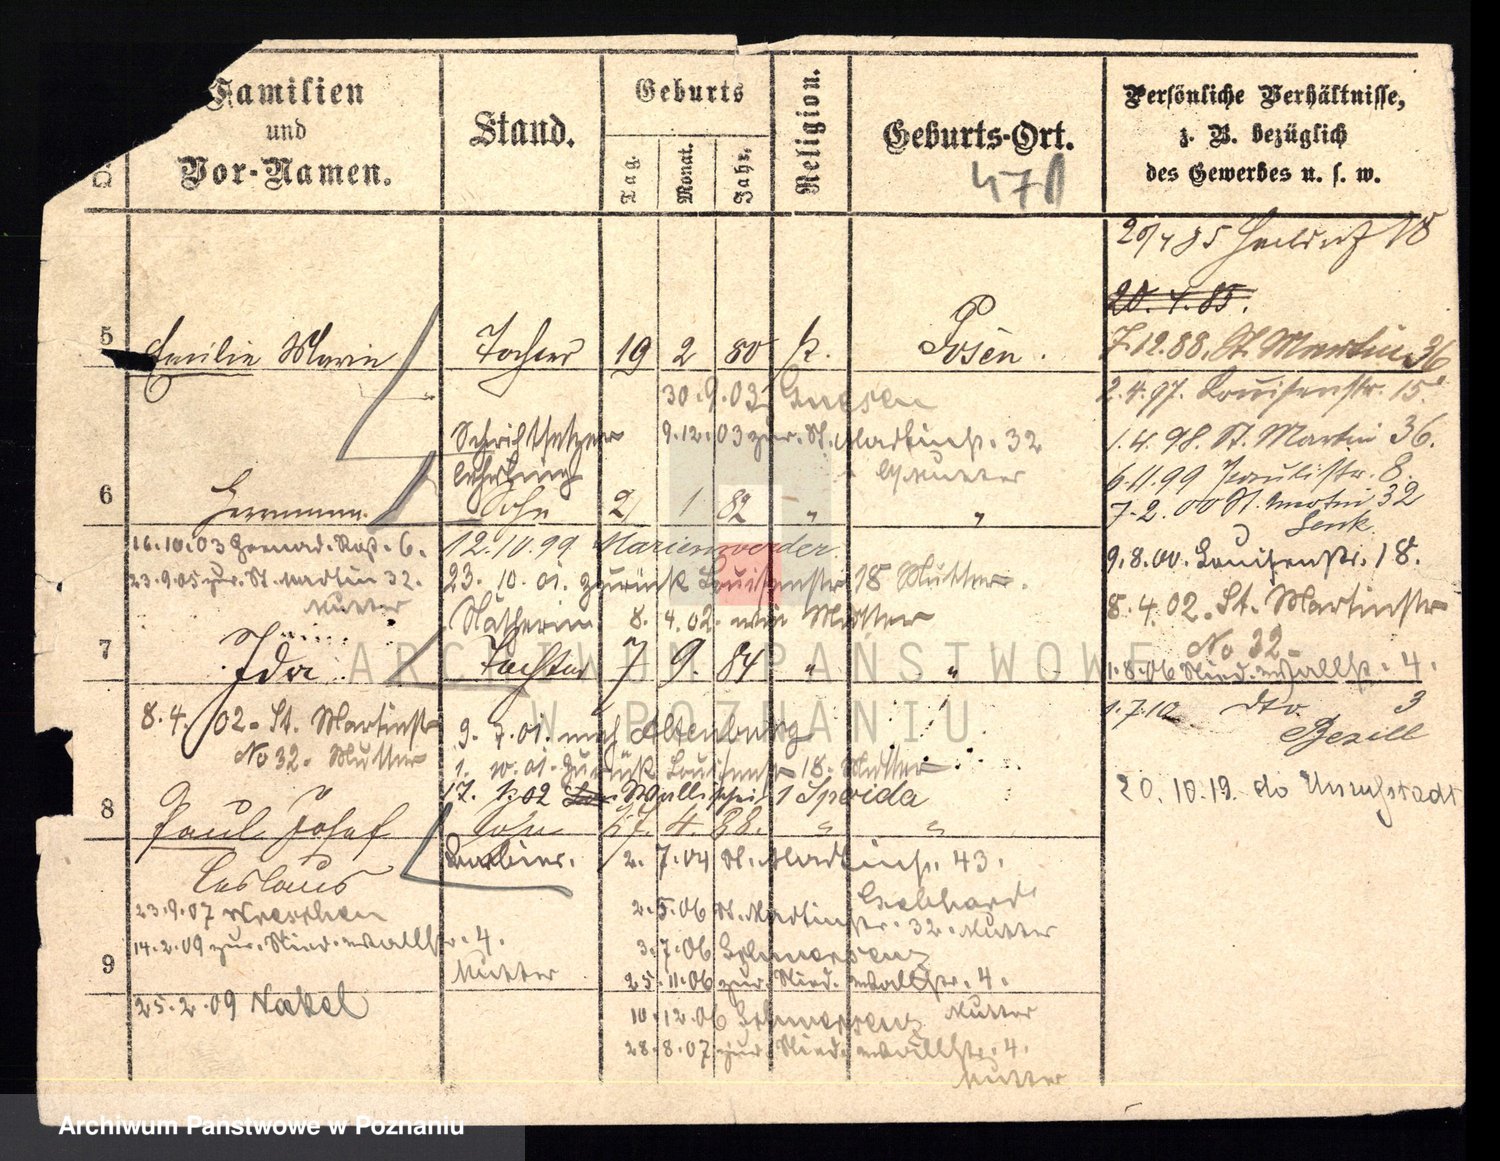 Familien
und
Vor-Namen.
Stand.
Geburts
Tag.
Monat.
Jahr.
Religion.
Geburts-Ort.
Persönliche Verhältnisse,
z. B. bezüglich
des Gewerbes u. s. w.
471
20/4 85 18
20. 4. 85.
5 Emilie Marie Tochter 19 2 80 k. Posen.
7.12.88. St. Martin 36
30.9.03 Gnesen
2.4.97. Louisenstr. 15
Schriftsetzer 9.12.03 zur. St. Martinstr. 32
1.4.98. St. Martin 36.
lehrling
b/ Mutter
6.11.99 Paulistr. 8.
6 Herrmann. Sohn 2 1 82 " "
7.2.00 St. Martin 32
Senk
16.10.03 Gr. 6.
12.10.99 Marienwerder.
9.8.00. Louisenstr. 18.
23.9.05 zur. St. Martin 32.
Mutter
23.10.01. zurück Louisenstr 18 Mutter.
8.4.02. St. Martinstr
No 32.
Nätherin 8.4.02. Mutter
7 Ida Tochter 7 9. 84 " "
1.8.06 Nied. Wallstr. 4.
8.4.02. St. Martinstr
No 32. Mutter
9.7.01. nach Altenburg
1.7.10 dto 3
Bezill
1. 10.01. zurück Louisenstr 18. Mutter
17. 02 Wallischei 1 Spoida
20.10.19. do Unruhstadt
8 Paul Josef Sohn 27. 4. 88. " "
Ceslaus
Barbier. 2.7.04 St. Martinstr. 43.
Gebhardt
23.9.07 Wreschen
2.5.06 St. Martinstr. 32. Mutter
14.2.09 zur. Nied. Wallstr. 4.
Mutter
3.7.06 Schwersenz
9
25.11.06 zur. Nied. Wallstr. 4.
Mutter
25.2.09 Nakel
10.12.06 Schwersenz
28.8.07 zur. Nied. Wallstr. 4.
Mutter
ARCHIWUM PAŃSTWOWE
W POZNANIU
Archiwum Państwowe w Poznaniu